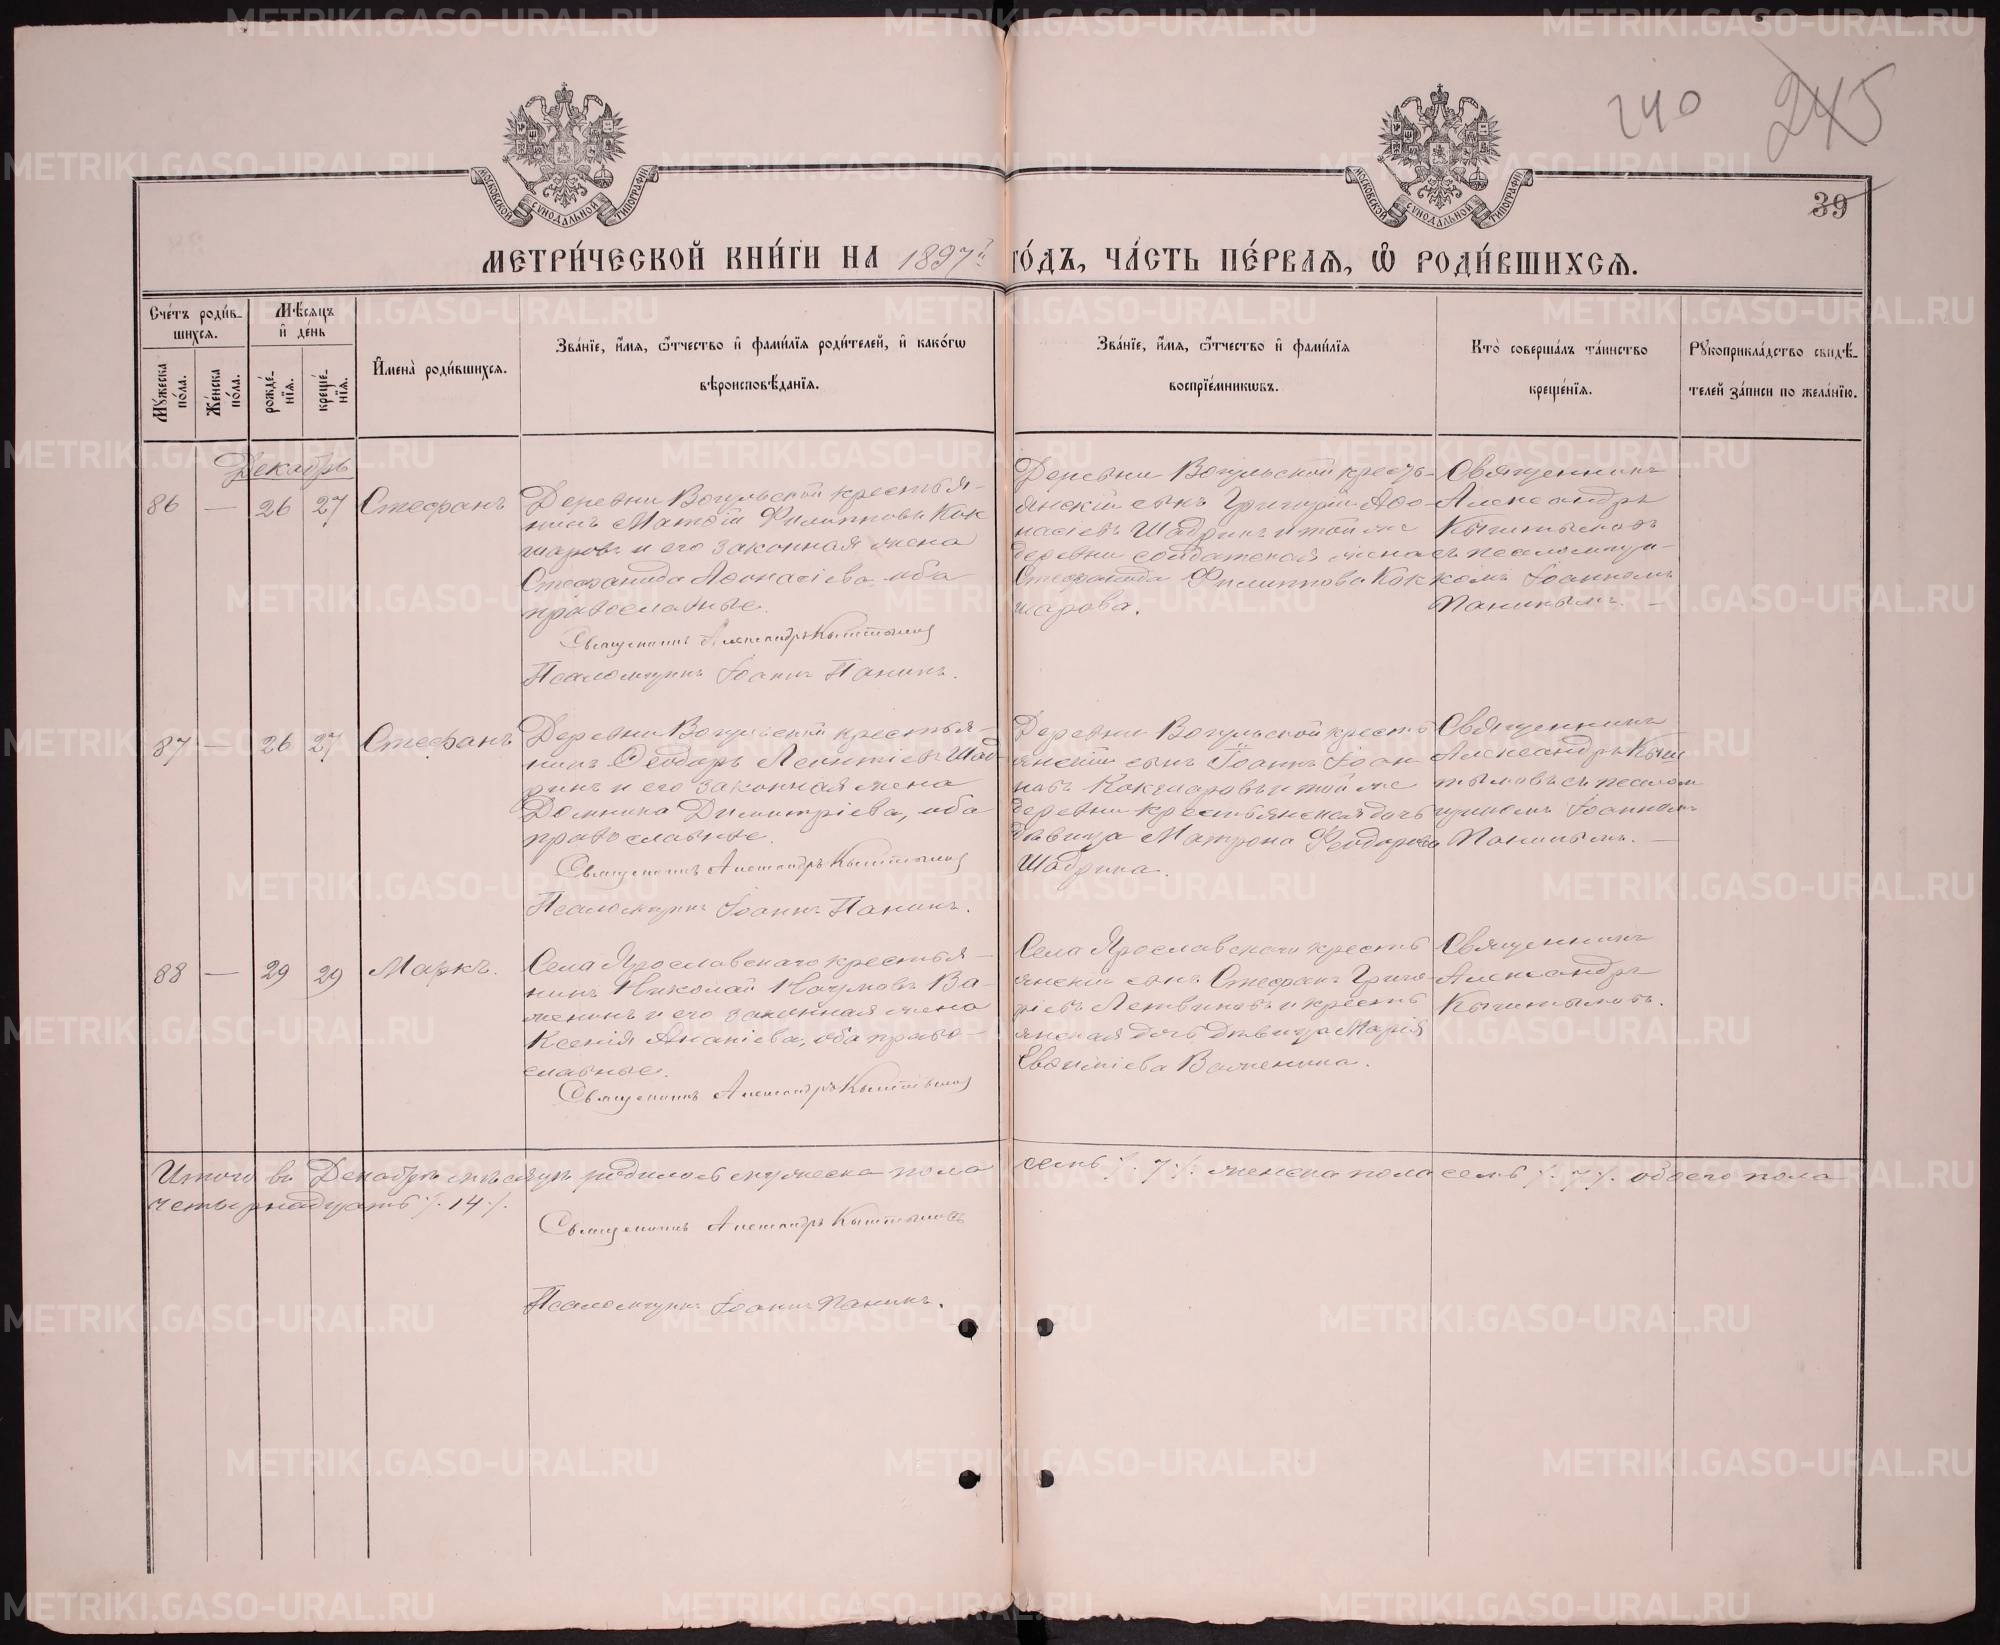 240 245
39
МОСКОВСКОЙ СѴНОДАЛЬНОЙ ТИПОГРАФІИ
МОСКОВСКОЙ СѴНОДАЛЬНОЙ ТИПОГРАФІИ
МЕТРИ́ЧЕСКОЙ КНИ́ГИ НА 1897й ГО́ДЪ, ЧА́СТЬ ПЕ́РВАЯ, Ѡ РОДИ́ВШИХСЯ.
Сче́тъ роди́в-
шихся.
Мѣ́сяцъ
и де́нь
Му́жеска
по́ла.
Же́нска
по́ла.
рожде́-
нїя.
креще́-
нїя.
Имена̀ роди́вшихся.
Зва́нїе, и́мя, ѻ́тчество и фами́лїя роди́телей, и како́гѡ
вѣроисповѣ́данїя.
Зва́нїе, и́мя, ѻ́тчество и фами́лїя
воспрїе́мникѡвъ.
Кто̀ соверша́лъ та́инство
креще́нїя.
Рукоприкла́дство свидѣ́-
телей за́писи по жела́нїю.
Декабрь
86 — 26 27 Стефанъ
Деревни Вогульской крестья-
нинъ Матѳій Филипповъ Кок
шаровъ и его законная жена
Стефанида Аѳонасіева, оба
православные.
Священникъ Александръ Кыштымовъ
Псаломщикъ Іоаннъ Панинъ.
Деревни Вогульской кресть-
янскій сынъ Григорій Аѳо-
насіевъ Шадринъ и той же
деревни солдатская жена
Стефанида Филиппова Кок
шарова.
Священникъ
Александръ
Кыштымовъ
съ псаломщи-
комъ Іоанномъ
Панинымъ. —
87 — 26 27 Стефанъ
Деревни Вогульской крестья-
нинъ Ѳеодоръ Леонтіевъ Шад-
ринъ и его законная жена
Домнина Димитріева, оба
православные.
Священникъ Александръ Кыштымовъ
Псаломщикъ Іоаннъ Панинъ.
Деревни Вогульской кресть
янскій сынъ Іоаннъ Іоан
новъ Кокшаровъ и той же
деревни крестьянская дочь
дѣвица Матрона Феодорова
Шадрина.
Священникъ
Александръ Кыш
тымовъ съ псалом
щикомъ Іоанномъ
Панинымъ. —
88 — 29 29 Маркъ.
Села Ярославскаго крестья-
нинъ Николай Наумовъ Ва-
женинъ и его законная жена
Ксенія Ананіева, оба право-
славные.
Священникъ Александръ Кыштымовъ
Села Ярославскаго кресть
янскій сынъ Стефанъ Григо-
ріевъ Летвиновъ и кресть
янская дочь дѣвица Марія
Евѳиміева Важенина.
Священникъ
Александръ
Кыштымовъ.
Итого въ Декабрѣ мѣсяцѣ родилось мужеска пола семь ·/. 7 ·/. женска пола семь ·/. 7 ·/. обоего пола
четырнадцать ·/. 14 ·/.
Священникъ Александръ Кыштымовъ
Псаломщикъ Іоаннъ Панинъ.
METRIKI.GASO-URAL.RU